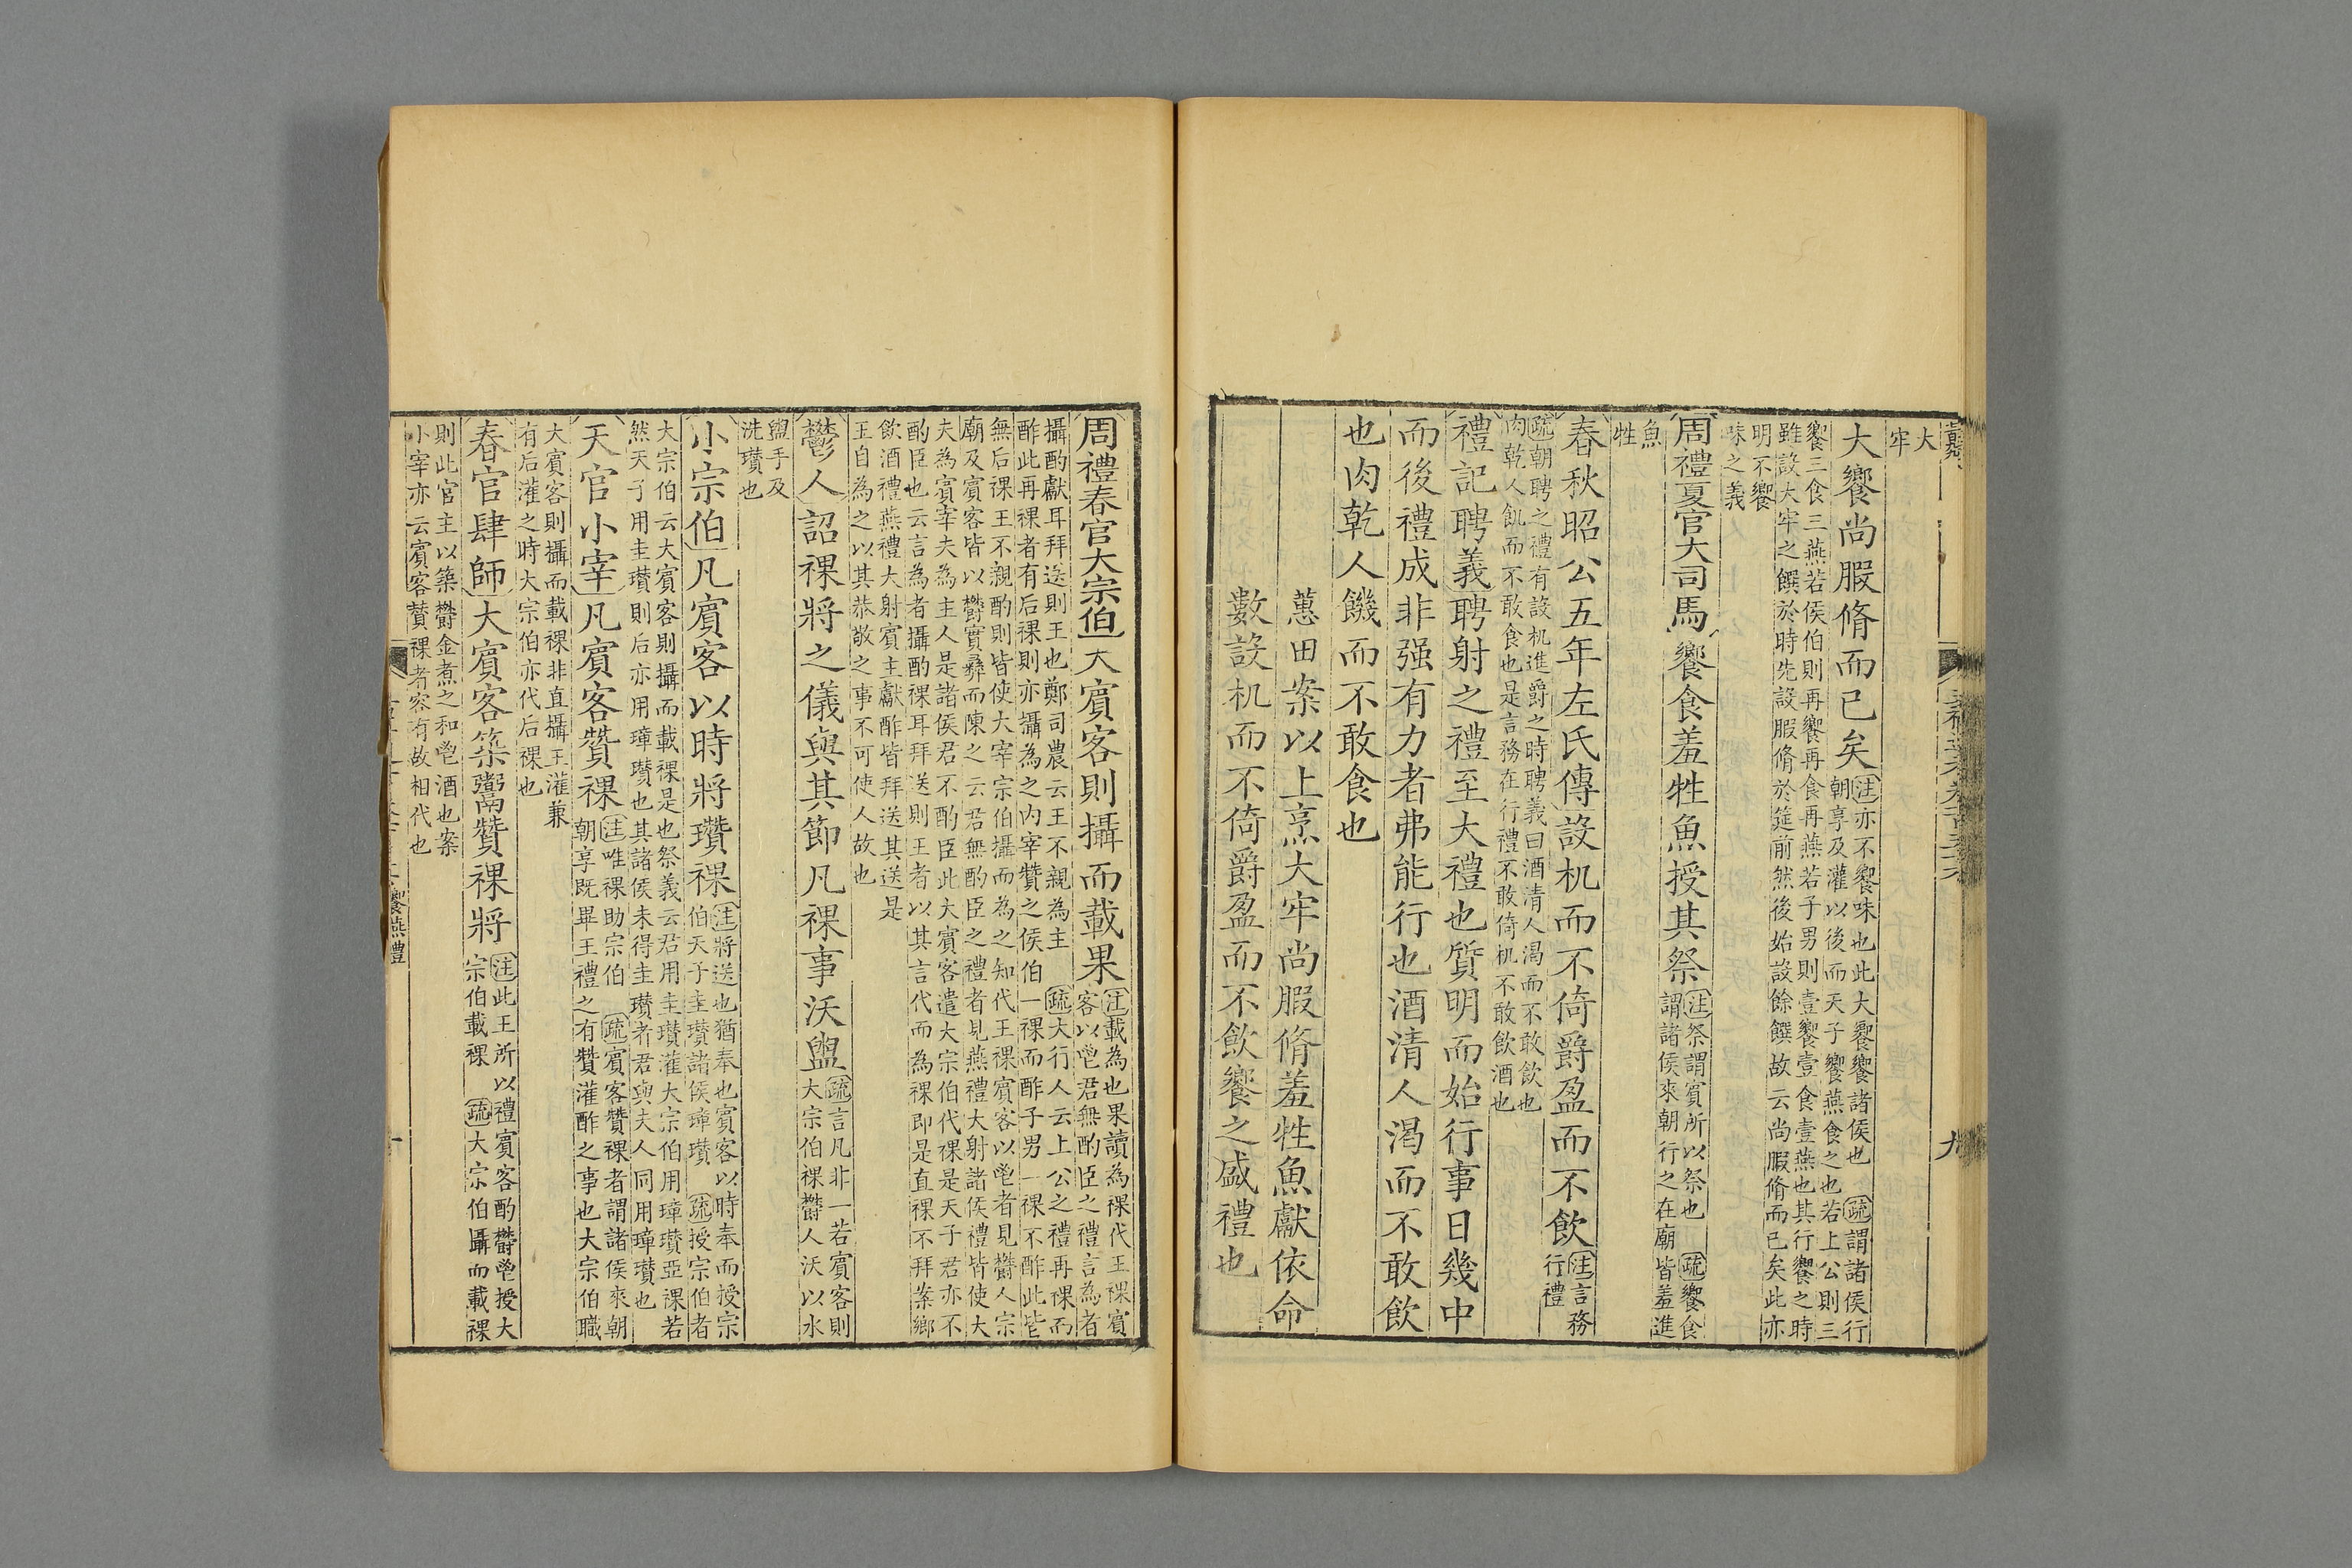 大
牢
大饗尚腵脩而已矣
注亦不饗味也此大饗饗諸侯也 疏謂諸侯行
朝享及灌以後而天子饗燕食之也若上公則三
饗三食三燕若侯伯則再饗再食再燕若子男則壹饗壹食壹燕也其行饗之時
雖設大牢之饌於時先設腵脩於筵前然後始設餘饌故云尚腵脩而已矣此亦
明不饗
味之義
周禮夏官大司馬饗食羞牲魚授其祭
注祭謂賓所以祭也 疏饗食
謂諸侯來朝行之在廟皆羞進
魚
牲
春秋昭公五年左氏傳設机而不倚爵盈而不飲
注言務
行禮
疏朝聘之禮有設机進爵之時聘義曰酒清人渴而不敢飲也
肉乾人飢而不敢食也是言務在行禮不敢倚机不敢飲酒也
禮記聘義聘射之禮至大禮也質明而始行事日幾中
而後禮成非强有力者弗能行也酒清人渴而不敢飲
也肉乾人饑而不敢食也
蕙田案以上烹大牢尚腵脩羞牲魚獻依命
數設机而不倚爵盈而不飲饗之盛禮也
九
周禮春官大宗伯大賓客則攝而載果
注載為也果讀為祼代王祼賓
客以鬯君無酌臣之禮言為者
攝酌獻耳拜送則王也鄭司農云王不親為主 疏大行人云上公之禮再祼而
酢此再祼者有后祼則亦攝為之內宰贊之侯伯一祼而酢子男一祼不酢此皆
無后祼王不親酌則皆使大宰宗伯攝而為之知代王祼賓客以鬯者見鬱人宗
廟及賓客皆以鬱實彝而陳之云君無酌臣之禮者見燕禮大射諸侯禮皆使大
夫為賓宰夫為主人是諸侯君不酌臣此大賓客遣大宗伯代祼是天子君亦不
酌臣也云言為者攝酌祼耳拜送則王者以其言代而為祼即是直祼不拜案鄉
飲酒禮燕禮大射賓主獻酢皆拜送其送是
王自為之以其恭敬之事不可使人故也
鬱人詔祼將之儀與其節凡祼事沃盥
疏言凡非一若賓客則
大宗伯祼鬱人沃以水
盥手及
洗瓚也
小宗伯凡賓客以時將瓚祼
注將送也猶奉也賓客以時奉而授宗
伯天子圭瓚諸侯璋瓚 疏授宗伯者
大宗伯云大賓客則攝而載祼是也祭義云君用圭瓚灌大宗伯用璋瓚亞祼若
然天子用圭瓚則后亦用璋瓚也其諸侯未得圭瓚者君與夫人同用璋瓚也
天官小宰凡賓客贊祼
注唯祼助宗伯 疏賓客贊祼者謂諸侯來朝
朝享既畢王禮之有贊灌酢之事也大宗伯職
大賓客則攝而載祼非直攝王灌兼
有后灌之時大宗伯亦代后祼也
春官肆師大賓客築鬻贊祼將
注此王所以禮賓客酌鬱鬯授大
宗伯載祼 疏大宗伯攝而載祼
則此官主以築鬱金煮之和鬯酒也案
小宰亦云賓客贊祼者容有故相代也
饗燕禮